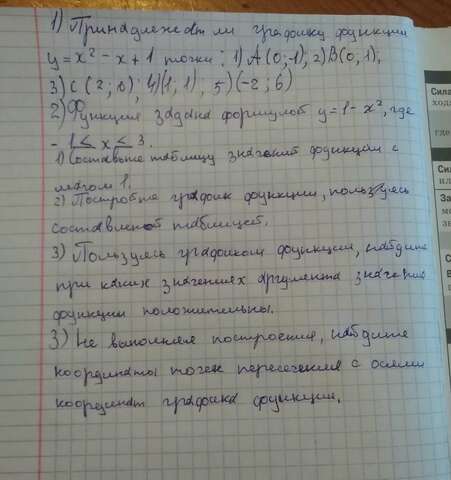 1) Принадлежат ли графику функции
y = x² - x + 1 точки: 1) A(0;-1); 2) B(0;1);
3) C(2;0); 4)(1;1); 5)(-2;6)
2) Функция задана формулой y = 1 - x², где
-1 ≤ x ≤ 3.
1) Составьте таблицу значений функции с
шагом 1.
2) Постройте график функции, пользуясь
составленой таблицей.
3) Пользуясь графиком функции, найдите
при каких значениях аргумента значения
функции положительны.
3) Не выполняя построения, найдите
координаты точек пересечения с осями
координат графика функции.
Сила
ход
где
Си